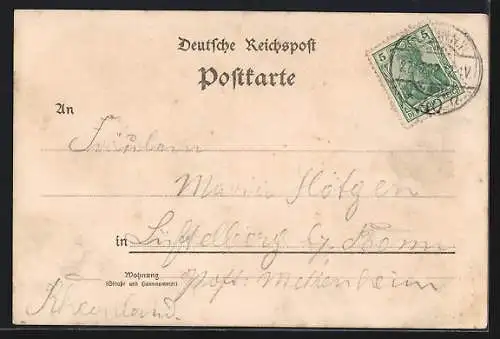 Deutsche Reichspost
Postkarte
5 5
An
Fräulein
Maria Hötgen
in Lüftelberg b. Bonn
Wohnung
(Straße und Hausnummer)
Post: Meckenheim
Rheinland.